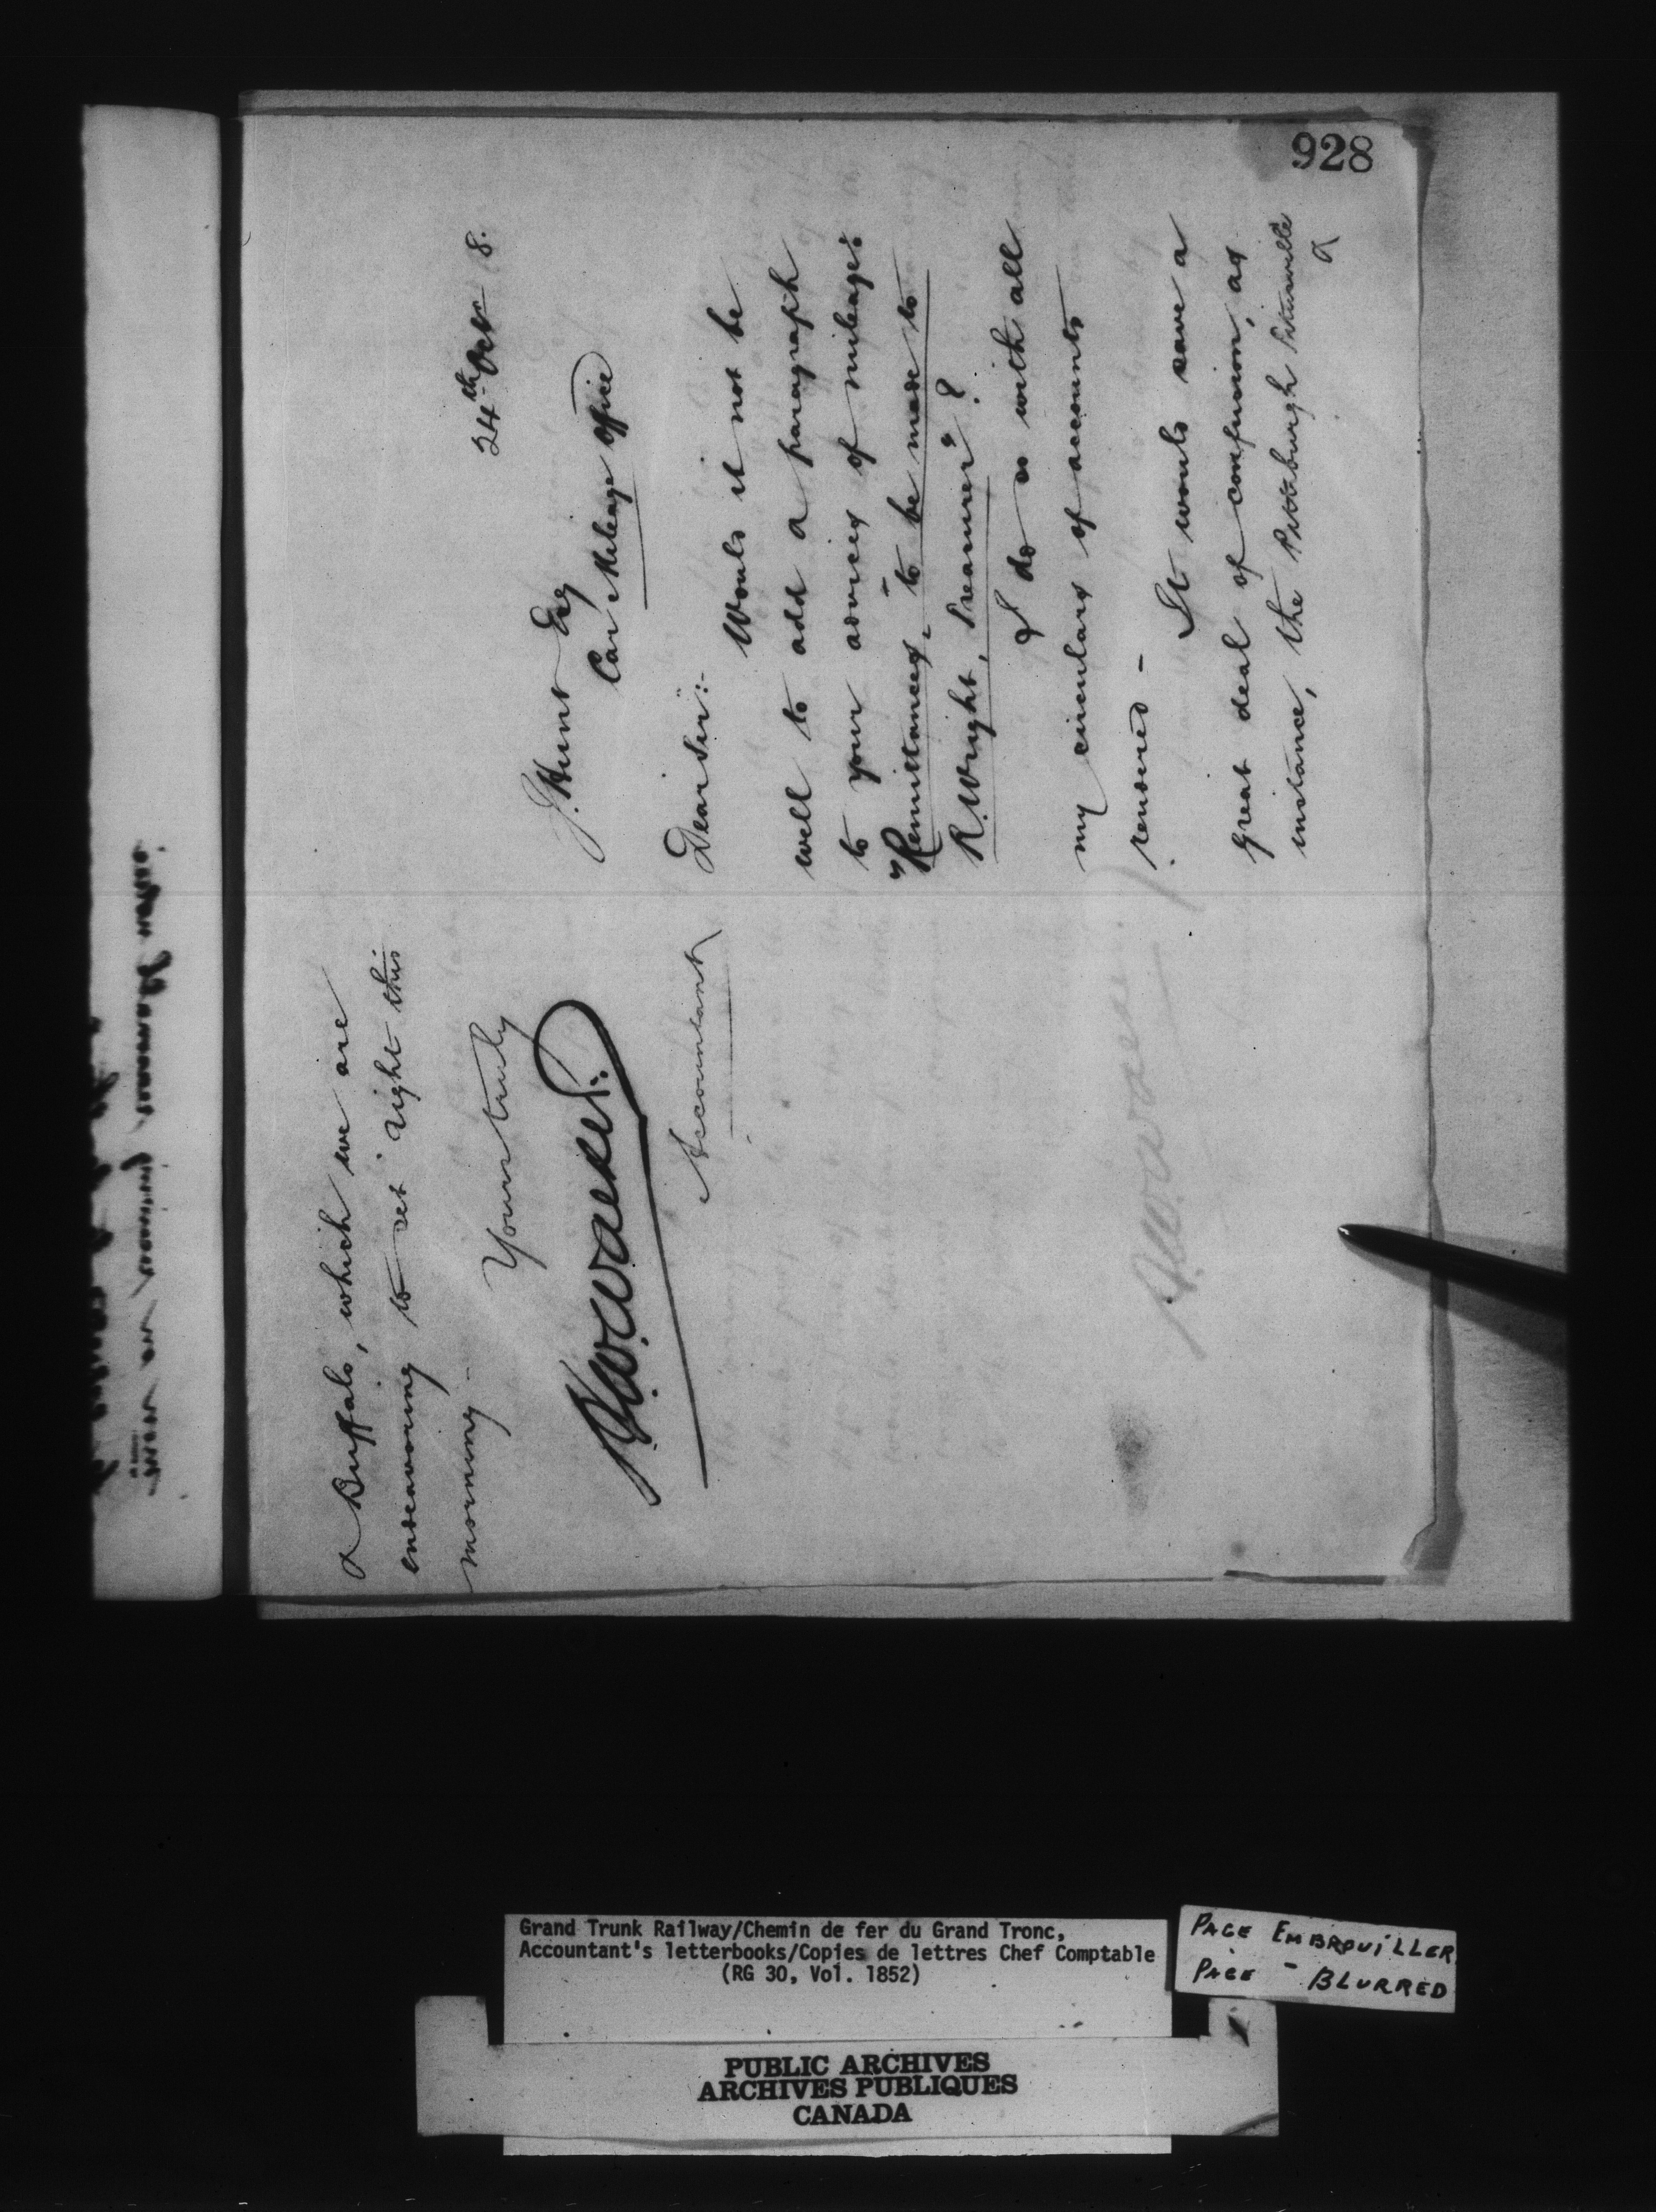 928
24th Octr 8.
J. Hunt Esq
Car Mileage Office
Dear Sir:-
Would it not be
well to add a paragraph
to your advices of mileage:
"Remittances, to be made to
R. Wright, Treasurer"?
I do so with all
my circulars of accounts
rendered -
It would save a
great deal of confusion, as
instance, the Pittsburgh Titusville
&
& Buffalo, which we are
endeavoring to set right this
morning -
Yours truly
Accountant
Grand Trunk Railway/Chemin de fer du Grand Tronc,
Accountant's letterbooks/Copies de lettres Chef Comptable
(RG 30, Vol. 1852)
PAGE EMBROUILLER
PAGE - BLURRED
PUBLIC ARCHIVES
ARCHIVES PUBLIQUES
CANADA